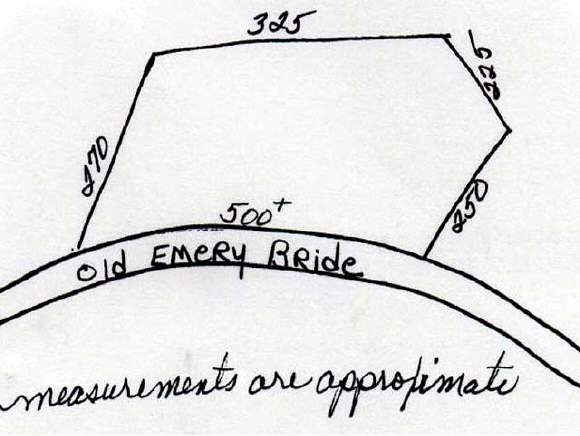 325
225
270
250
500+
Old EMERY BRide
measurements are approximate